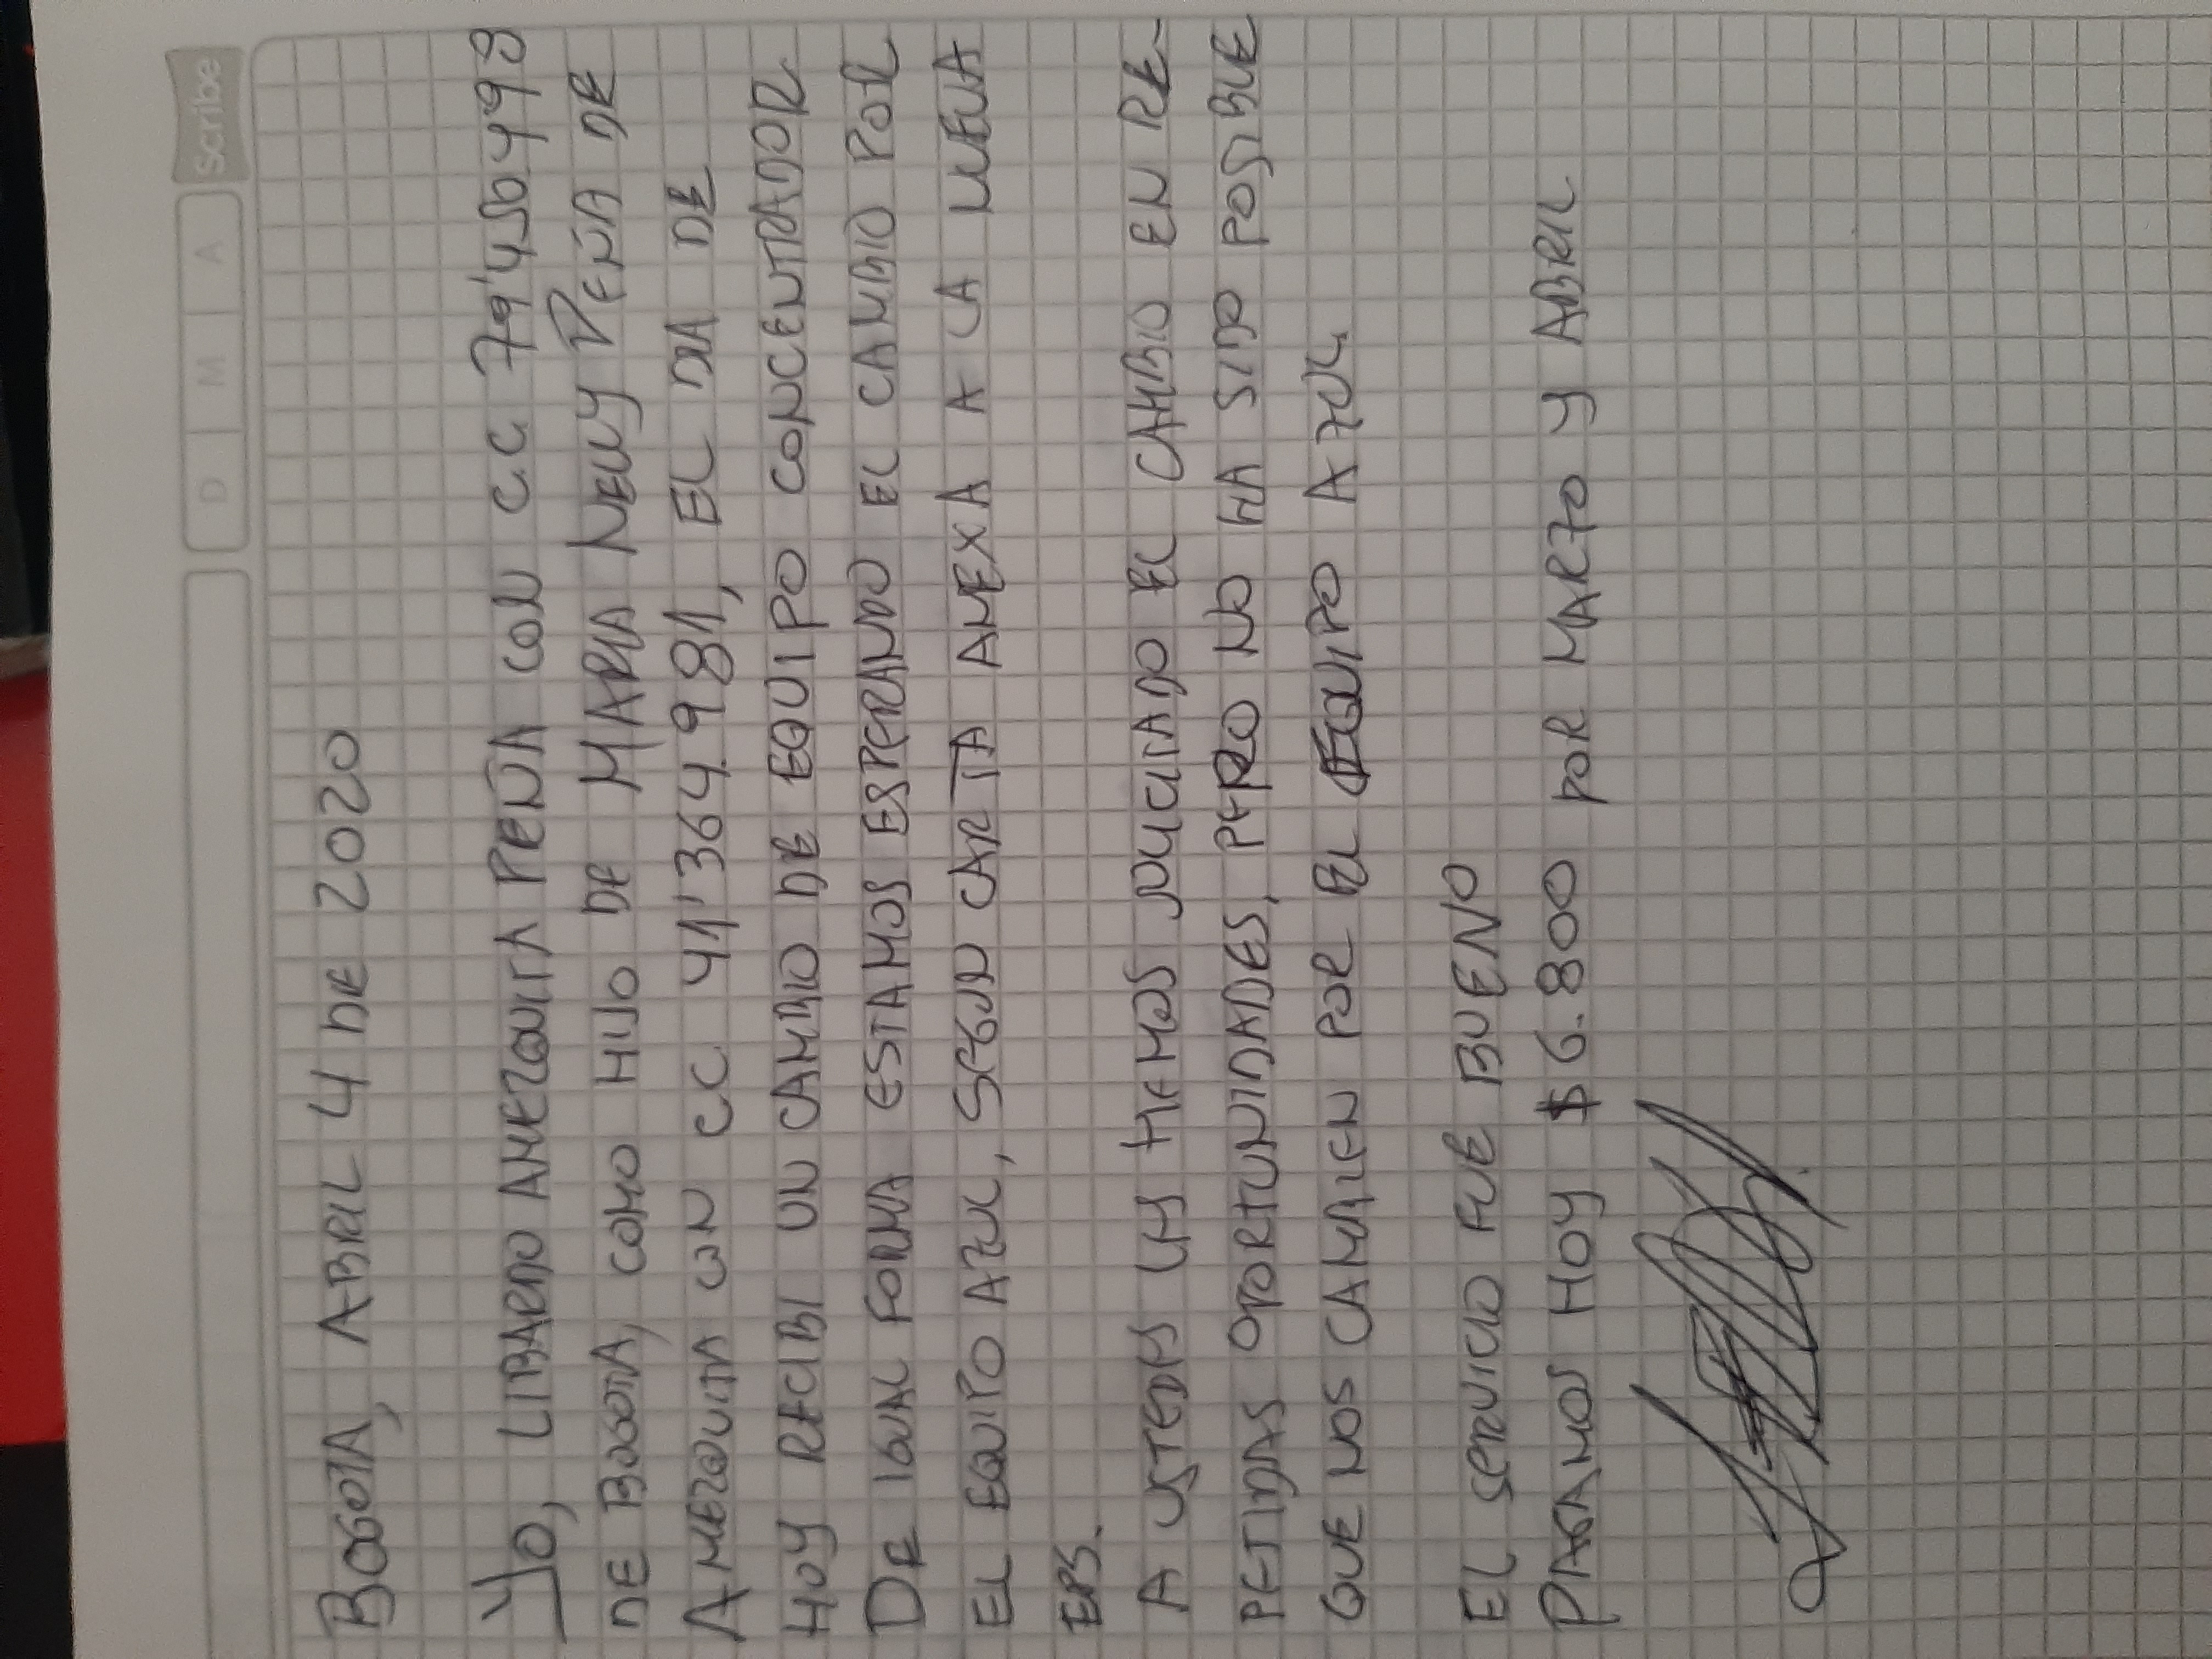 Scribe
D M A
BOGOTA, ABRIL 4 DE 2020
YO, LIBARDO AMEZQUITA PEÑA CON C.C 79'450498
DE BOGOTA, COMO HIJO DE MARIA NELLY PEÑA DE
AMEZQUITA CON CC 41'364.981, EL DIA DE
HOY RECIBI UN CAMBIO DE EQUIPO CONCENTRADOR
DE IGUAL FORMA ESTAMOS ESPERANDO EL CAMBIO POR
EL EQUIPO AZUL, SEGUN CARTA ANEXA A LA NUEVA
EPS.
A USTEDES LES HEMOS SOLICITADO EL CAMBIO EN RE-
PETIDAS OPORTUNIDADES, PERO NO HA SIDO POSIBLE
QUE NOS CAMBIEN POR EL EQUIPO AZUL
EL SERVICIO FUE BUENO
PAGAMOS HOY $ 6.800 POR MARZO Y ABRIL